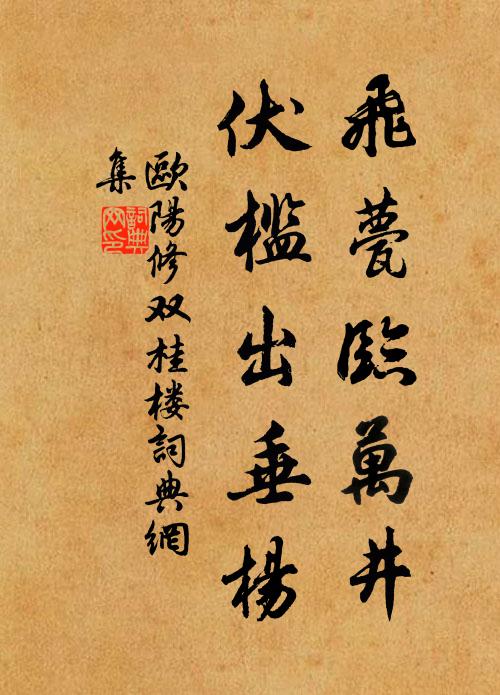 飛甍臨萬井
伏檻出垂楊
歐陽修双桂楼詞典網
集
詞典
网印